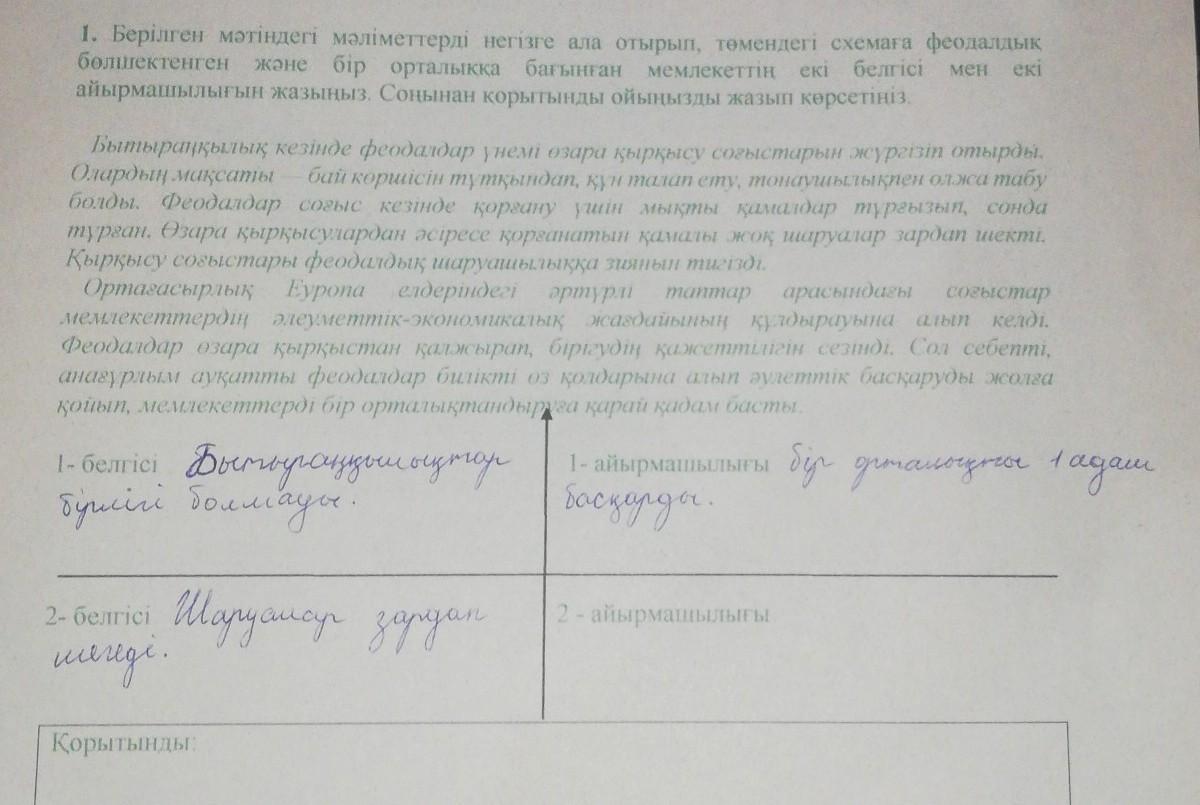 1. Берілген мәтіндегі мәліметтерді негізге ала отырып, төмендегі схемаға феодалдық
бөлшектенген және бір орталыққа бағынған мемлекеттің екі белгісі мен екі
айырмашылығын жазыңыз. Соңынан қорытынды ойыңызды жазып көрсетіңіз.
Бытыраңқылық кезінде феодалдар үнемі өзара қырқысу соғыстарын жүргізіп отырды.
Олардың мақсаты — бай көршісін тұтқындап, құн талап ету, тонаушылықпен олжа табу
болды. Феодалдар соғыс кезінде қорғану үшін мықты қамалдар тұрғызып, сонда
тұрған. Өзара қырқысулардан әсіресе қорғанатын қамалы жоқ шаруалар зардап шекті.
Қырқысу соғыстары феодалдық шаруашылыққа зиянын тигізді.
Ортағасырлық Еуропа елдеріндегі әртүрлі таптар арасындағы соғыстар
мемлекеттердің әлеуметтік-экономикалық жағдайының құлдырауына алып келді.
Феодалдар өзара қырқыстан қалжырап, бірігудің қажеттілігін сезінді. Сол себепті,
анағұрлым ауқатты феодалдар билікті өз қолдарына алып әулеттік басқаруды жолға
қойып, мемлекеттерді бір орталықтандыруға қарай қадам басты.
1- белгісі Бытыраңқылықтар
бірлігі болмады.
1- айырмашылығы бір орталықты 1 адам
басқарды.
2- белгісі Шаруалар зардап
шегеді.
2 - айырмашылығы
Қорытынды: